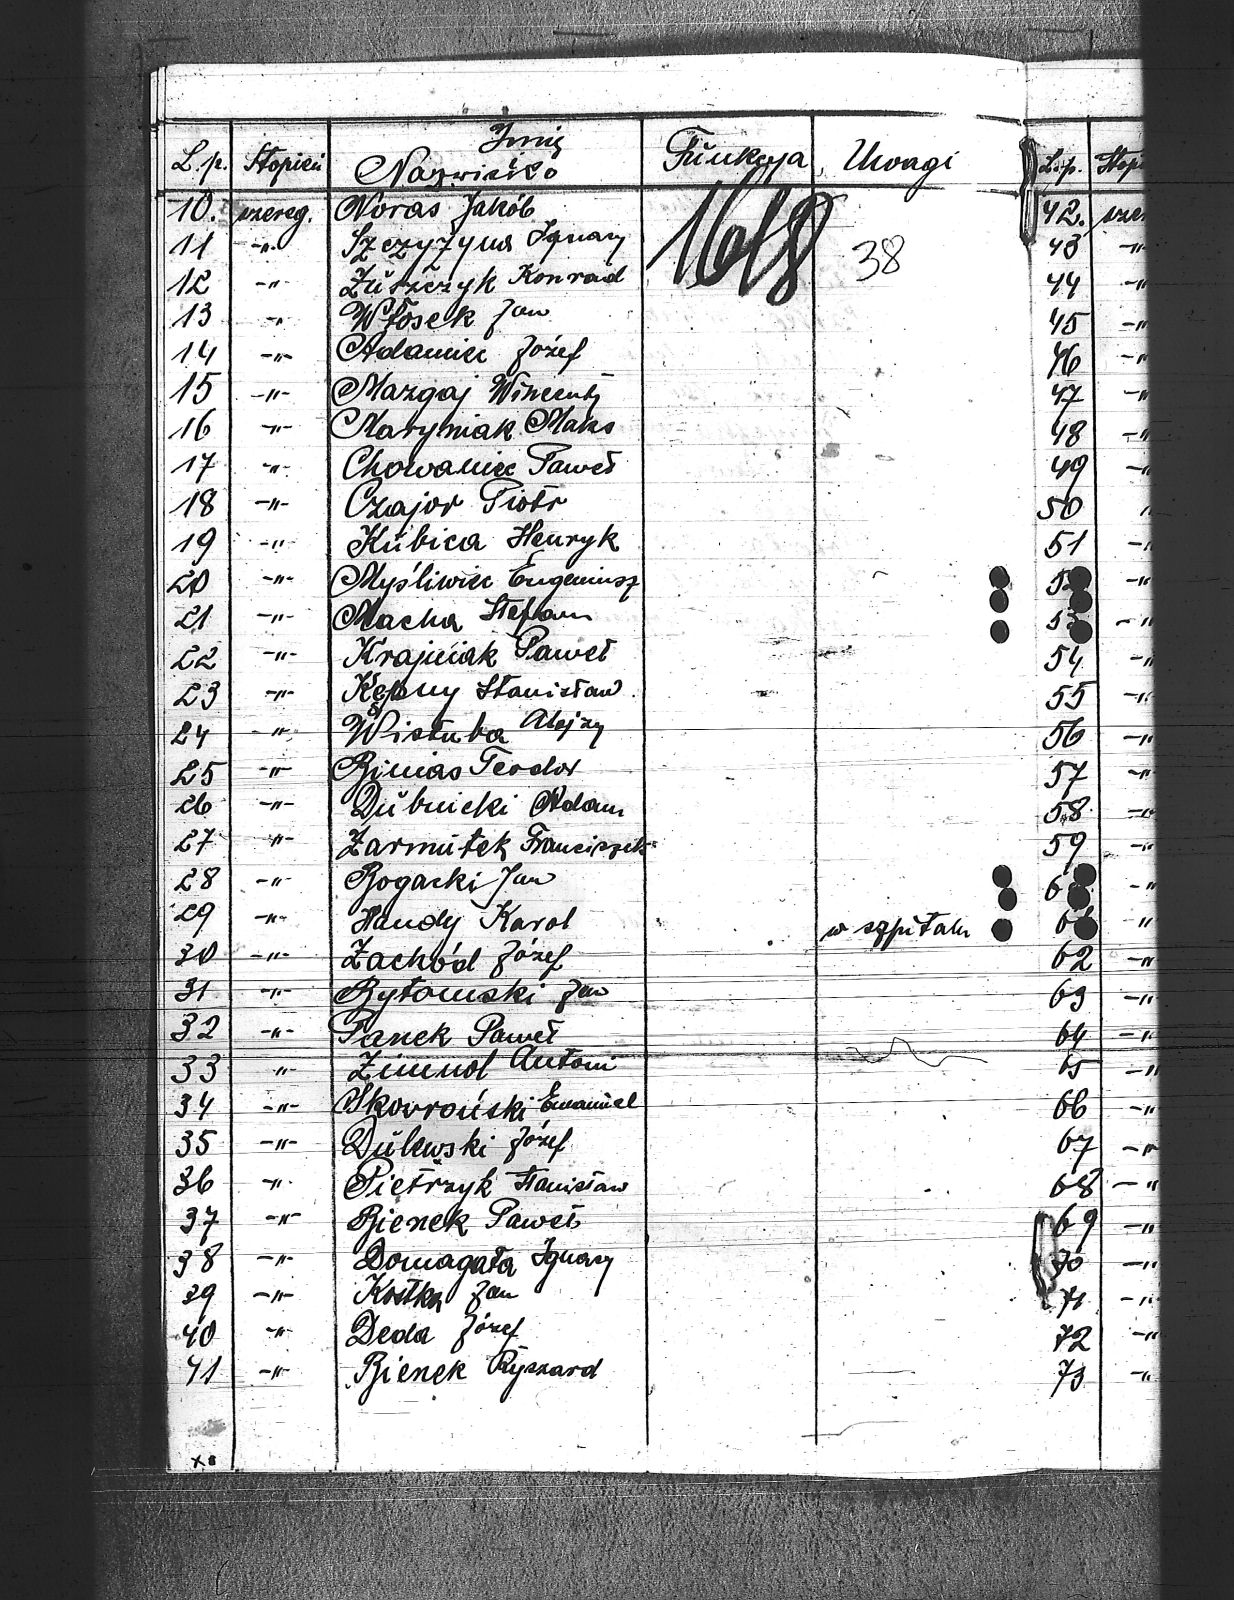 L.p. Stopień Imię Nazwisko Funkcja Uwagi L.p. Stop
10. szereg. Noras Jakób 1618 42. szer
11 -"- Szczyżyna Ignacy 38 43 -"
12 -"- Zuszczyk Konrad 44 -"
13 -"- Włosek Jan 45 -"
14 -"- Adamiec Józef 46 -"
15 -"- Mazgaj Wincenty 47 -"
16 -"- Maryniak Maks 48 -"
17 -"- Chowaniec Paweł 49 -"
18 -"- Czajor Piotr 50 "
19 -"- Kubica Henryk 51 -"
20 -"- Myśliwiec Eugeniusz 52 -"
21 -"- Macha Stefan 53 -"
22 -"- Krajniak Paweł 54 -"
23 -"- Kępny Stanisław 55 -"
24 -"- Wistuba Alojzy 56 -"
25 -"- Bimias Teodor 57 -"
26 -"- Dubnicki Adam 58 -"
27 -"- Zarmutek Franciszek 59 -"
28 -"- Bogacki Jan 6 -"
29 -"- Handy Karol w szpitalu 6 "
30 -"- Zachód Józef 62 -"
31 -"- Bytomski Jan 63 -"
32 -"- Panek Paweł 64 -"
33 " Zimnol Antoni 65 -"
34 -"- Skowroński Emanuel 66 -"
35 -"- Dulewski Józef 67 -"
36 -"- Pietrzyk Stanisław 68 -"
37 -"- Bienek Paweł 69 -"
38 -"- Domagała Ignacy 70 -"
39 -"- Kostka Jan 71 -"
40 -"- Deda Józef 72 -"
41 -"- Bienek Ryszard 73 -"